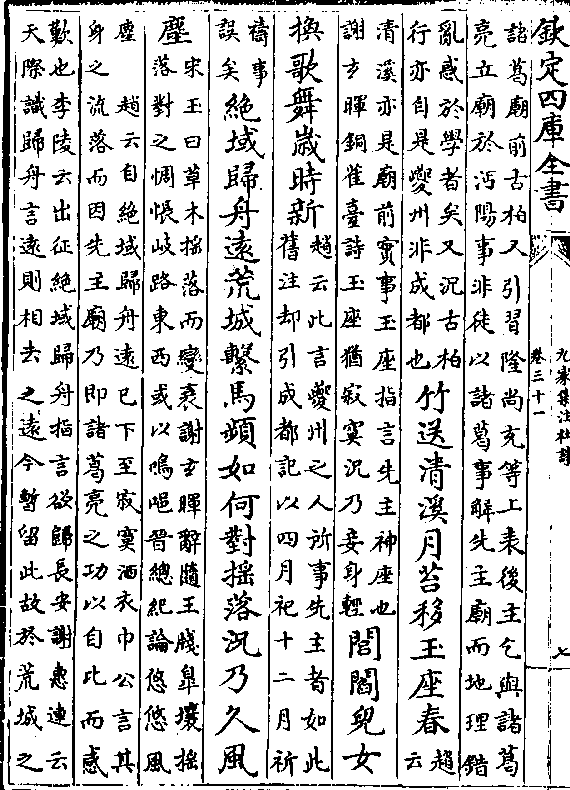 欽定四庫全書
九家集注杜詩
卷三十一
七
諸葛廟前古柏又引習隆尚充等上表後主乞與諸葛
亮立廟於沔陽事非徒以諸葛事解先主廟而地理錯
亂惑於學者矣又況古柏
行亦自是夔州非成都也
竹送清溪月苔移玉座春
趙
云
清溪亦是廟前實事玉座指言先主神座也
謝玄暉銅雀臺詩玉座猶寂寞況乃妾身輕
閭閻兒女
換歌舞歲時新
趙云此言夔州之人所事先主者如此
舊注却引成都記以四月祀十二月祈
禱事
誤矣
絕域歸舟遠荒城繫馬頻如何對揺落況乃久風
塵
宋玉曰草木揺落而變衰謝玄暉辭隨王牋臯壤揺
落對之惆悵岐路東西或以嗚唈晉總紀論悠悠風
塵趙云自絕域歸舟遠已下至寂寞洒衣巾公言其
身之流落而因先主廟乃即諸葛亮之功以自比而感
歎也李陵云出征絕域歸舟指言欲歸長安謝惠連云
天際識歸舟言遠則相去之遠今暫留此故於荒城之